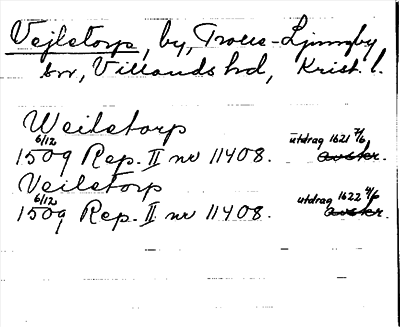 Vejletorp, by, Trolle-Ljungby
sn, Villands hd, Krist. l.
Weiletorp
6/12 1509 Rep. II nr 11408. utdrag 1621 7/6 avskr.
Veiletorp
6/12 1509 Rep. II nr 11408. utdrag 1622 4/6 avskr.